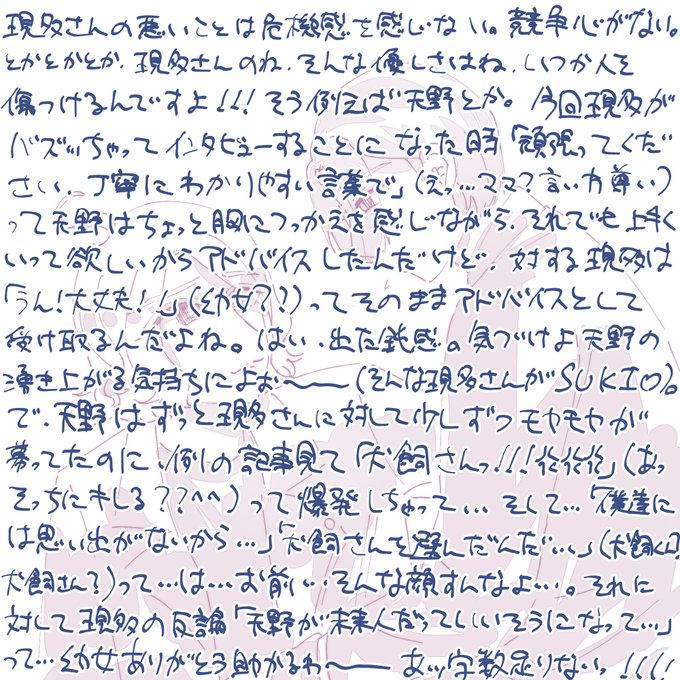 現多さんの悪いことは危機感を感じない。競争心がない。
とかとかとか、現多さんのね、そんな優しさはね、いつか人を
傷つけるんですよ!!! そう例えば天野とか。今回現多が
バズッちゃってインタビューすることになった時「頑張ってくだ
さい、丁寧にわかりやすい言葉で」(えっ…ママ?言い方尊い)
って天野はちょっと胸につっかえを感じながら、それでも上手く
いって欲しいからアドバイスしたんだけど、対する現多は
「うん!大丈夫!!」(幼女??)ってそのままアドバイスとして
受け取るんだよね。はい、出た鈍感。気づけよ天野の
湧き上がる気持ちによぉ〜――(そんな現多さんがSUKIO)。
で、天野はずっと現多さんに対して少しずつモヤモヤが
募ってたのに、例の記事見て「犬飼さんっ!!!」(あっ
そっちにキレる??^^)って爆発しちゃって… そして…「僕達に
は思い出がないから…」「犬飼さんを選んだんだ…」(犬飼くん?
犬飼さん?)って…は…お前…そんな顔すんなよ…。それに
対して現多の反論「天野が未来人だってしいいそうになって…」
って…幼女ありがとう助かるわ〜―― あッ字数足りないっ!!!!